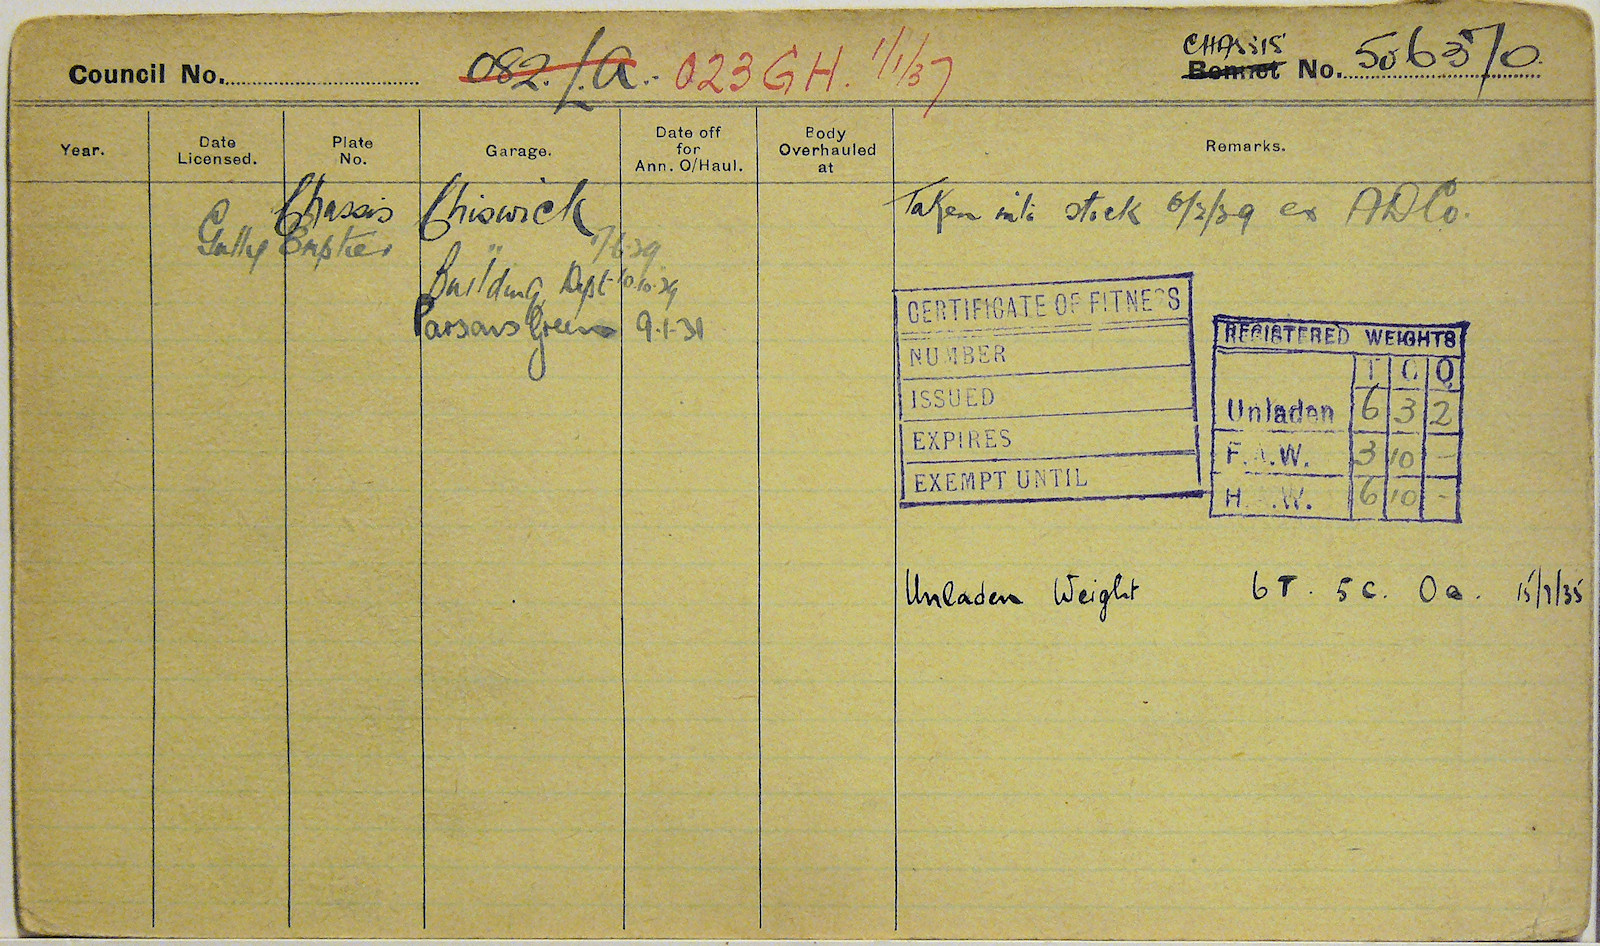 Council No. 082./.A. 023GH. 1/1/37
CHASSIS
Bonnet No. 506370
Year. Date Licensed. Plate No. Garage. Date off for Ann. O/Haul. Body Overhauled at Remarks.
Chassis Chiswick Taken into stock ex ADCo.
Gully Emptier " 7/6.29
Building Dept 10.10.29
Parsons Green 9.1.31
CERTIFICATE OF FITNESS
NUMBER
ISSUED
EXPIRES
EXEMPT UNTIL
REGISTERED WEIGHTS
T C Q
Unladen 6 3 2
F.A.W. 3 10 -
H.A.W. 6 10 -
Unladen Weight 6T. 5C. 0Q.